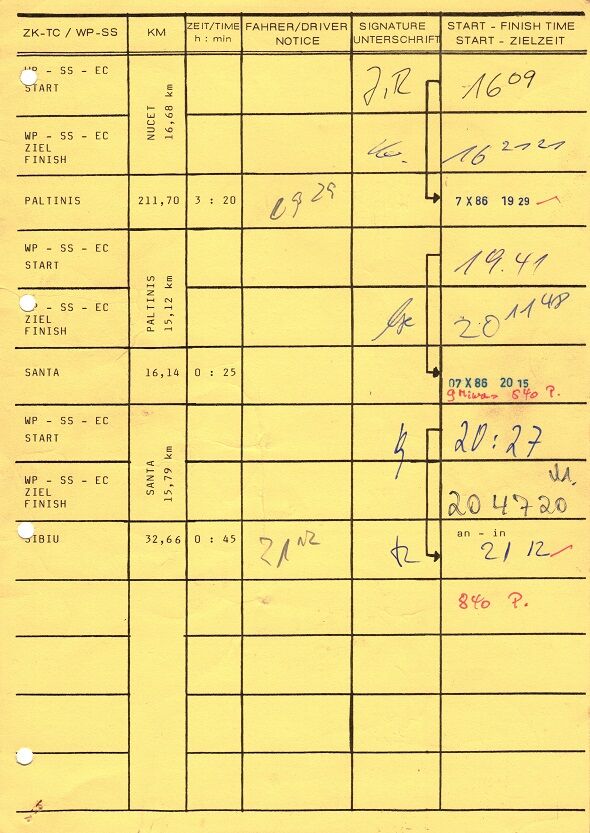 ZK-TC / WP-SS KM ZEIT/TIME FAHRER/DRIVER SIGNATURE START - FINISH TIME
h : min NOTICE UNTERSCHRIFT START - ZIELZEIT
WP - SS - EC
START
NUCET
16,68 km
16 09
WP - SS - EC
ZIEL
FINISH
16 21 21
PALTINIS 211,70 3 : 20 19 29 7 X 86 19 29
WP - SS - EC
START
PALTINIS
15,12 km
19.41
WP - SS - EC
ZIEL
FINISH
20 11 48
SANTA 16,14 0 : 25 07 X 86 20 15
840 P.
WP - SS - EC
START
SANTA
15,79 km
20:27
WP - SS - EC
ZIEL
FINISH
20 47 20
an - in
SIBIU 32,66 0 : 45 21 12 21 12
840 P.